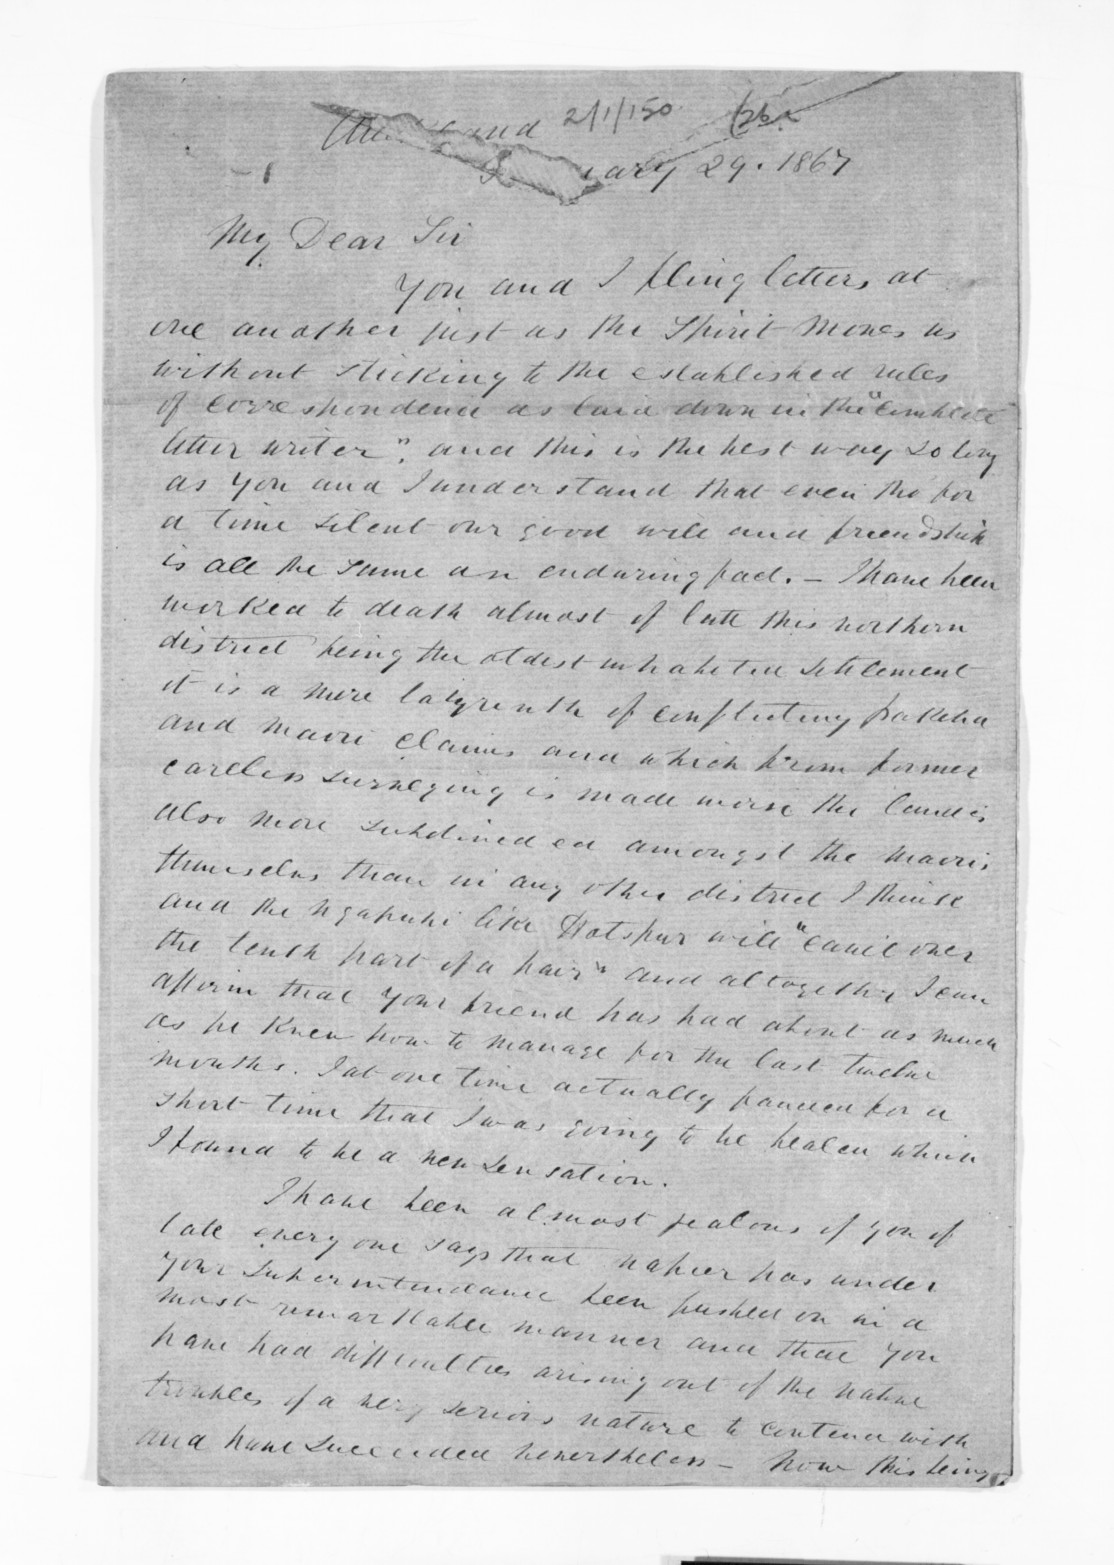 2/1/150 (26
Auckland
ary 29. 1867
My Dear Sir
You and I fling letters at
one another just as the Spirit moves us
without sticking to the established rules
of correspondence as laid down in the "Complete
letter writer". and this is the best way so long
as you and I understand that even tho' for
a time silent our good will and friendship
is all the same an enduring fact. – I have been
worked to death almost of late this northern
district being the oldest settlement
it is a mere labyrinth of conflicting pakeha
and maori claims and which from former
careless surveying is made worse the land is
also more subdivided amongst the maoris
themselves than in any other district I think
and the Ngapuhi like Hotspur will "cavil over
the tenth part of a hair" and altogether I can
affirm that your friend has had about as much
as he knew how to manage for the last twelve
months. I at one time actually fancied for a
short time that I was going to be bealed which
I found to be a new sensation.
I have been almost jealous of you of
late every one says that Napier has under
your Superintendance been pushed on in a
most remarkable manner and that you
have had difficulties arising out of the native
troubles of a very serious nature to contend with
and have succeeded nevertheless – Now this being